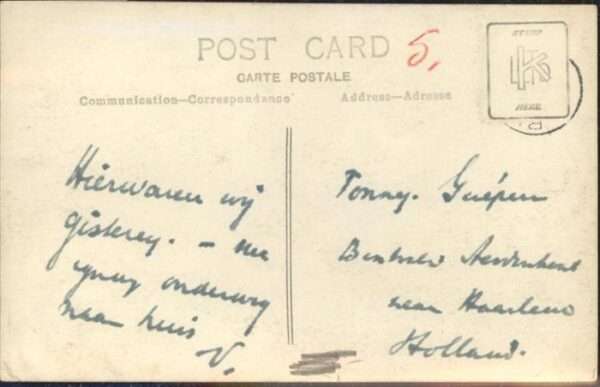 POST CARD 5.
CARTE POSTALE
Communication—Correspondance Address—Adresse
STAMP
HERE
Hierwaren wij
gisteren. – nu
onderweg
naar huis
V.
Tonny. Guépin
Aerdenhout
near Haarlem
Holland.